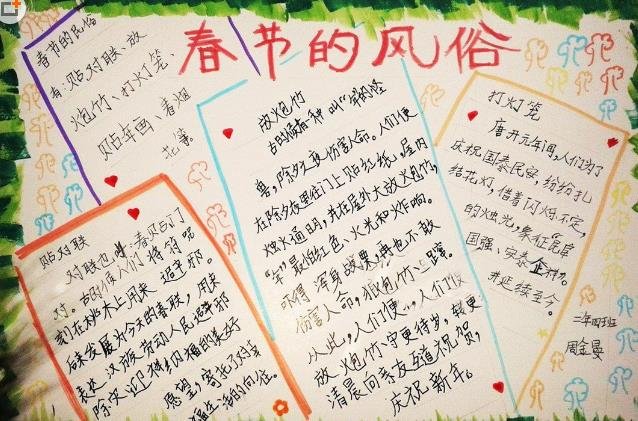 春节的风俗
春节的民俗
有:贴对联、放
炮竹、打灯笼、
贴年画、春烟
花等。
贴对联
对联也叫春贴、门
对。古时候人们将符呢
刻在桃木上用来避邪。
后来发展为今天的春联,用来
表达汉族劳动人民避邪
除灾、迎祥纳福的美好
愿望,寄托了对幸
福生活的向往。
放炮竹
古时候有一种叫“年”的怪
兽,除夕之夜伤害人命。人们便
在除夕夜里往门上贴红纸,屋内
烛火通明,并在屋外大放炮竹,
“年”最怕红色、火光和炸响。
吓得浑身战栗,再也不敢
伤害人命,
从此,人们便
放炮竹、守更待岁,
清晨向亲友互道祝贺,
庆祝新年。
打灯笼
唐开元年间,人们为了
庆祝国泰民安,纷纷扎
结花灯,借着闪烁不定
的烛光,象征“民阜
国强、安泰
并延续至今。
二年四班
周金曼